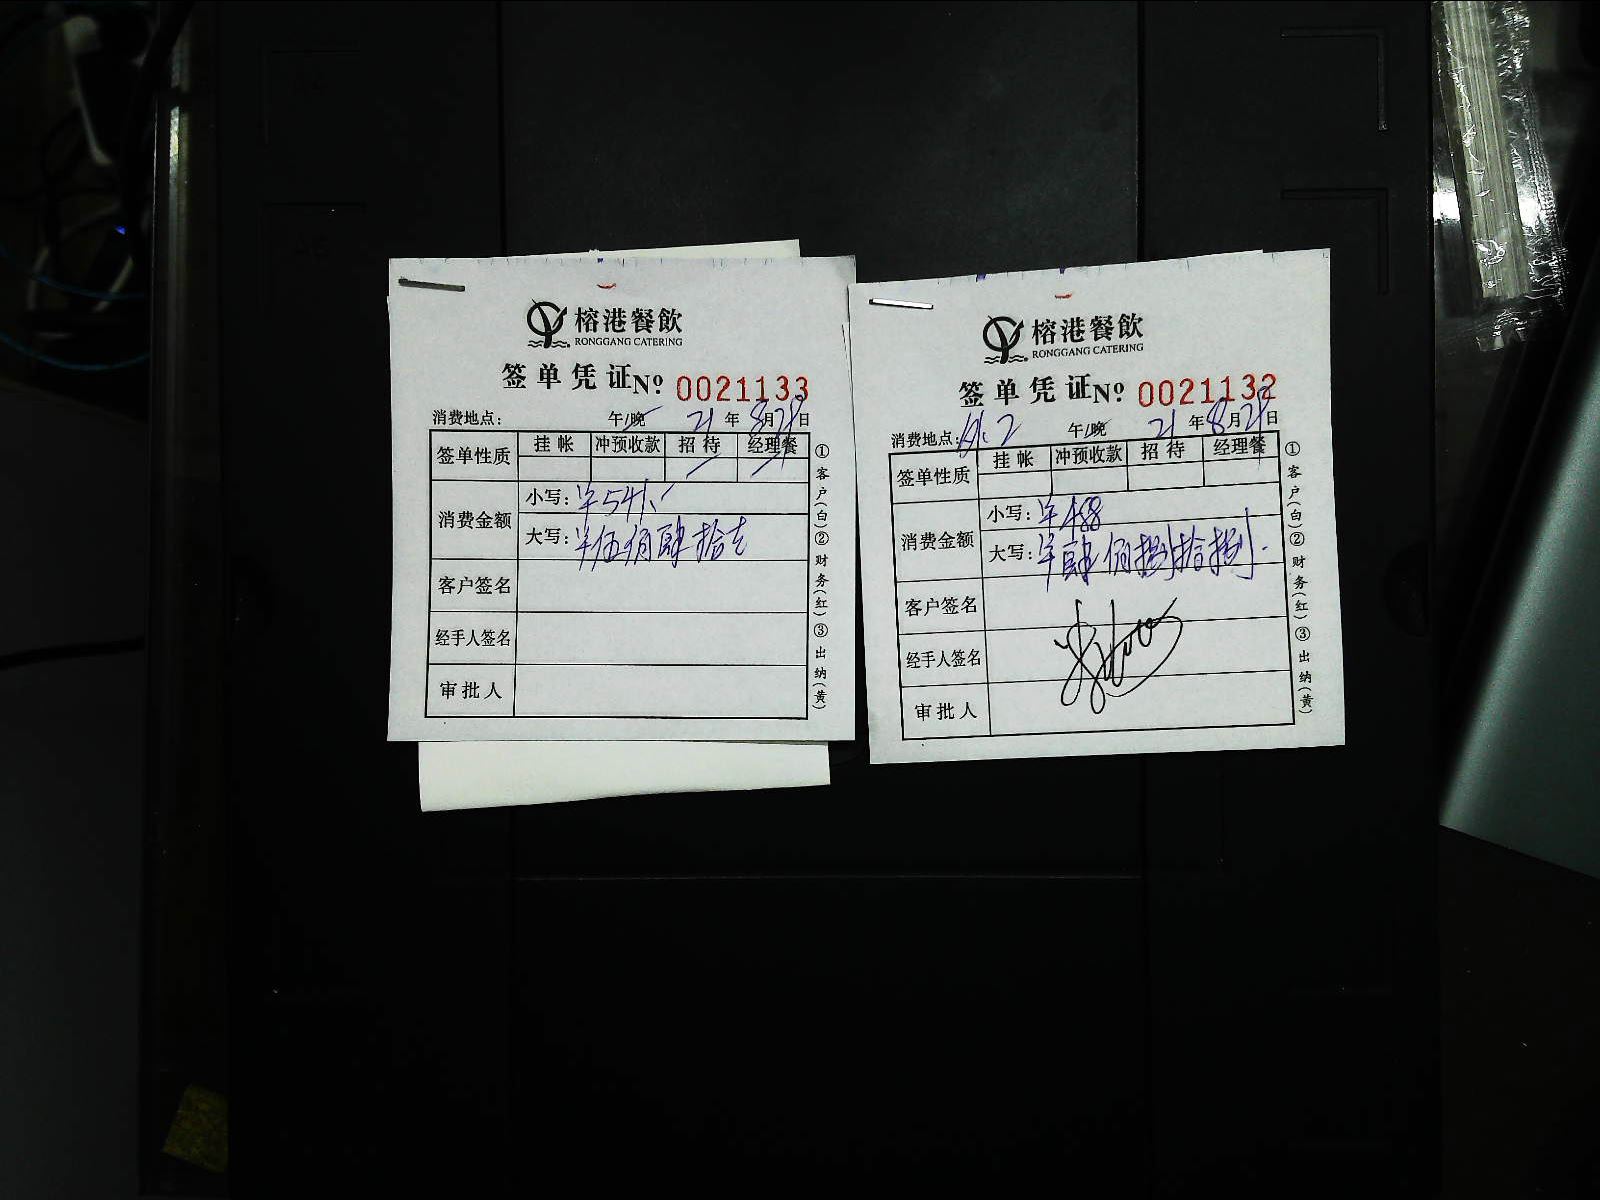 榕港餐飲
RONGGANG CATERING
签单凭证 Nº 0021133
消费地点: 午/晚 21年8月28日
签单性质 挂帐 冲预收款 招待 经理餐
消费金额
小写: ¥541.
大写: ¥伍佰肆拾
客户签名
经手人签名
审批人
①客户(白)②财务(红)③出纳(黄)
榕港餐飲
RONGGANG CATERING
签单凭证 Nº 0021132
消费地点: 2 午/晚 21年8月28日
签单性质 挂帐 冲预收款 招待 经理餐
消费金额
小写: ¥488
大写: ¥肆佰捌拾捌.
客户签名
经手人签名
审批人
①客户(白)②财务(红)③出纳(黄)